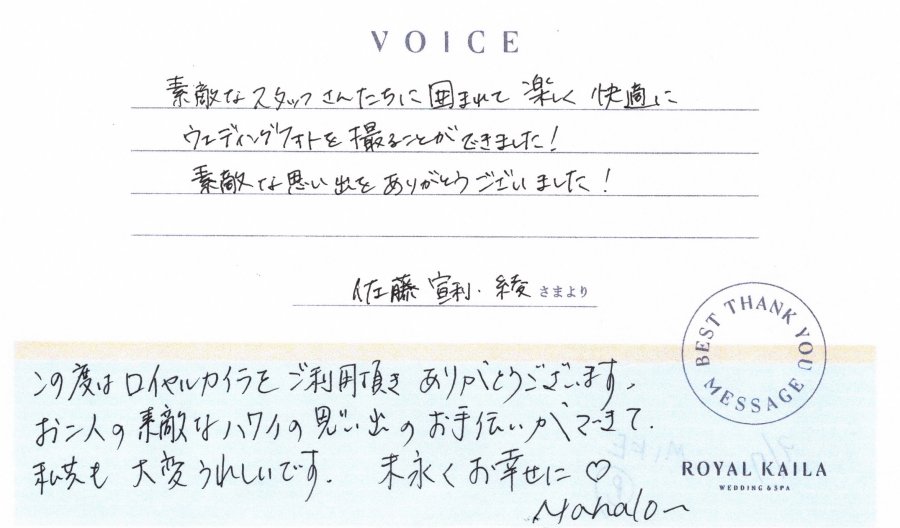 VOICE
素敵なスタッフさんたちに囲まれて楽しく快適に
ウェディングフォトを撮ることができました!
素敵な思い出をありがとうございました!
佐藤 宣利・綾 さまより
BEST THANK YOU MESSAGE
この度はロイヤルカイラをご利用頂きありがとうございます。
お二人の素敵なハワイの思い出のお手伝いができて、
私共も大変うれしいです。 末永くお幸せに♡
Mahalo~
ROYAL KAILA
WEDDING & SPA